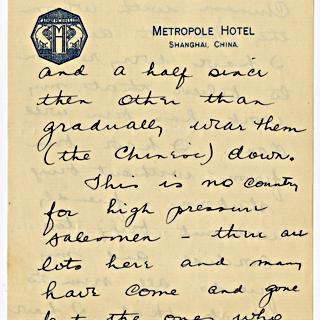 METROPOLE HOTEL
SHANGHAI, CHINA.
and a half since
then other than
gradually wear them
(the Chinese) down.
This is no country
for high pressure
salesmen – there are
lots here and many
have come and gone
but the ones who